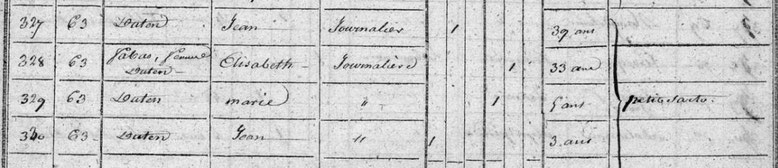 327 63 Daten Jean Journalier 1 39 ans
328 63 Sabas, femme Daten Elisabeth Journalière 1 33 ans
329 63 Daten marie " 1 5 ans
330 63 Daten Jean " 1 3 ans